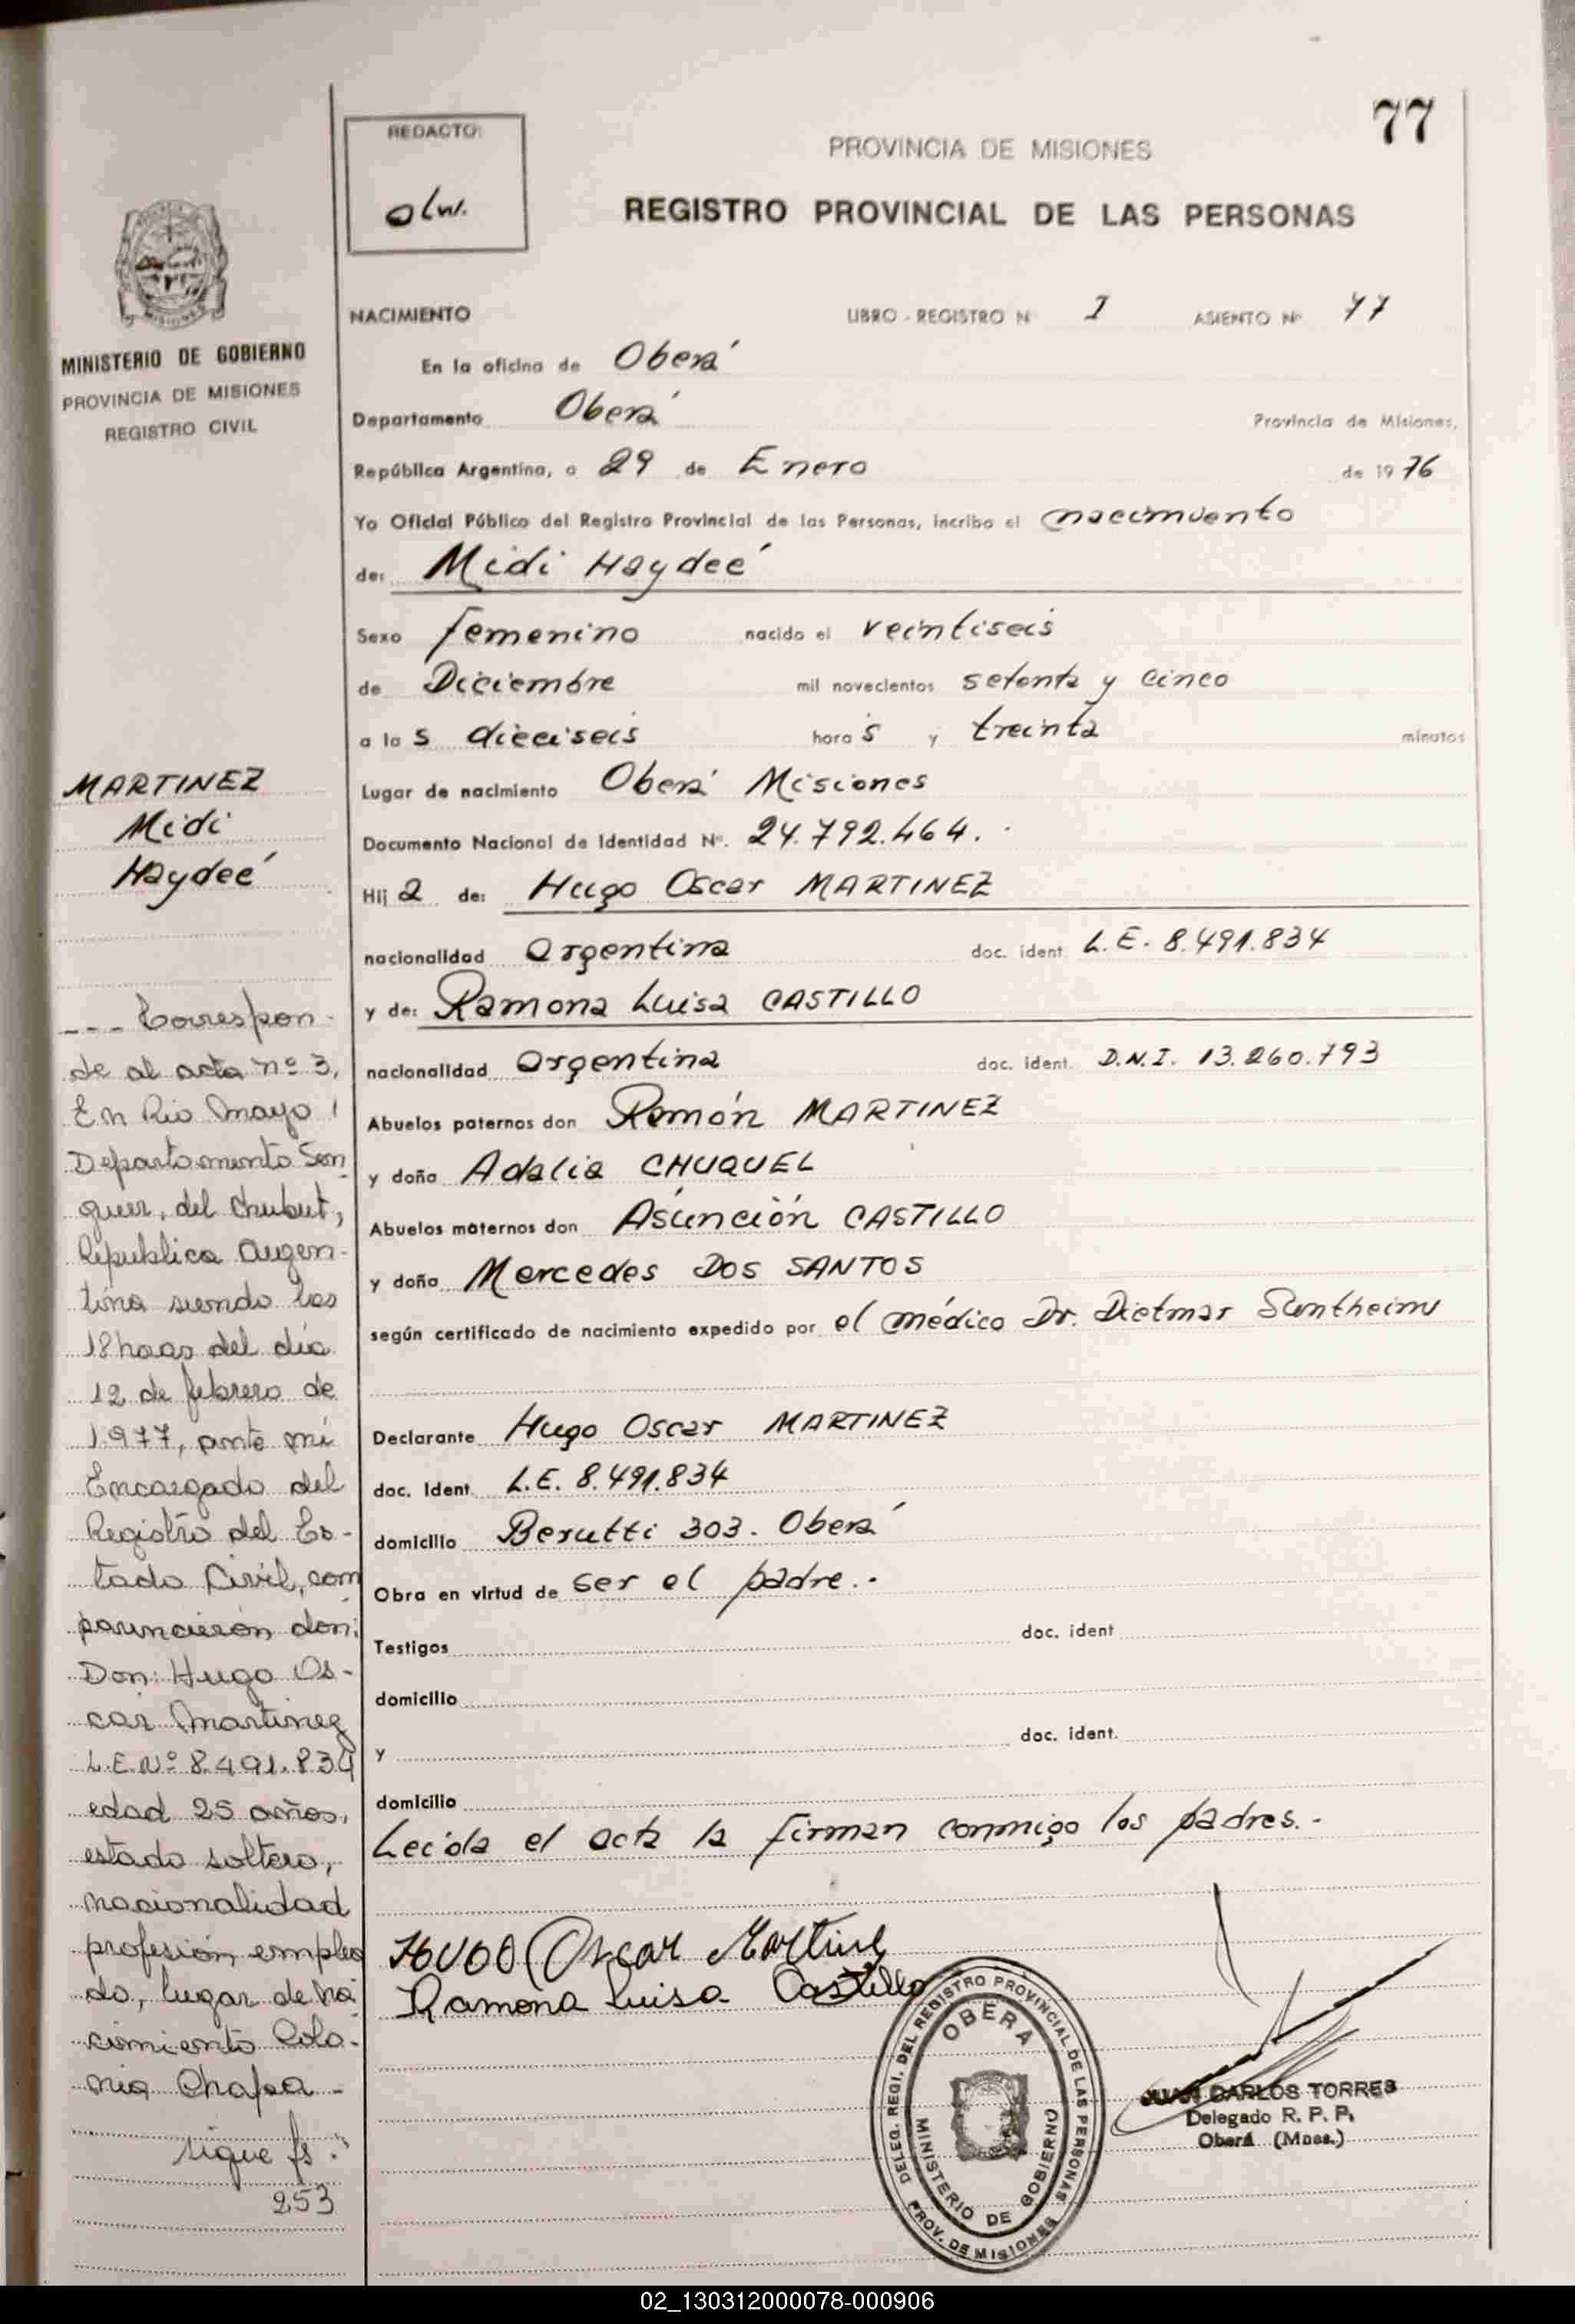 77
REDACTO:
PROVINCIA DE MISIONES
REGISTRO PROVINCIAL DE LAS PERSONAS
MINISTERIO DE GOBIERNO
PROVINCIA DE MISIONES
REGISTRO CIVIL
NACIMIENTO LIBRO - REGISTRO N 1 ASIENTO Nº 77
En la oficina de Oberá
Departamento Oberá Provincia de Misiones,
República Argentina, a 29 de Enero de 1976
Yo Oficial Público del Registro Provincial de las Personas, incribo el nacimiento
de: Midi Haydeé
Sexo femenino nacido el veintiseis
de Diciembre mil novecientos setenta y cinco
a las dieciseis horas y treinta minutos
Lugar de nacimiento Oberá Misiones
Documento Nacional de Identidad Nº. 24.792.464.
Hija de: Hugo Oscar MARTINEZ
nacionalidad Argentina doc. ident. L.E. 8.491.834
y de: Ramona Luisa CASTILLO
nacionalidad Argentina doc. ident. D.N.I. 13.260.793
Abuelos paternos don Ramón MARTINEZ
y doña Adalia CHUQUEL
Abuelos maternos don Asunción CASTILLO
y doña Mercedes DOS SANTOS
según certificado de nacimiento expedido por el médico Dr. Dietmar
Declarante Hugo Oscar MARTINEZ
doc. Ident. L.E. 8.491.834
domicilio Berutti 303. Oberá
Obra en virtud de ser el padre.-
Testigos doc. ident
domicilio
y doc. ident.
domicilio
Leída el acta la firman conmigo los padres.-
Hugo Oscar Martinez
Ramona Luisa Castillo
MARTINEZ
Midi
Haydeé
--- Correspon-
de al acta nº 3,
En Rio Mayo,
Departamento Sen
guer, del Chubut,
Republica Argen-
tina siendo las
18 horas del dia
12 de febrero de
1977, ante mi
Encargado del
Registro del Es-
tado Civil, com
parecieron don:
Don: Hugo Os-
car Martinez
L.E.Nº 8.491.834
edad 25 años,
estado soltero,
nacionalidad
profesión emplea
do, lugar de na
cimiento Colo-
nia Chapa-
sigue fs.
253
DELEG. REGI. DEL REGISTRO PROVINCIAL DE LAS PERSONAS
OBERA
MINISTERIO DE GOBIERNO
PROV. DE MISIONES
JUAN CARLOS TORRES
Delegado R. P. P.
Oberá (Mnes.)
02_130312000078-000906